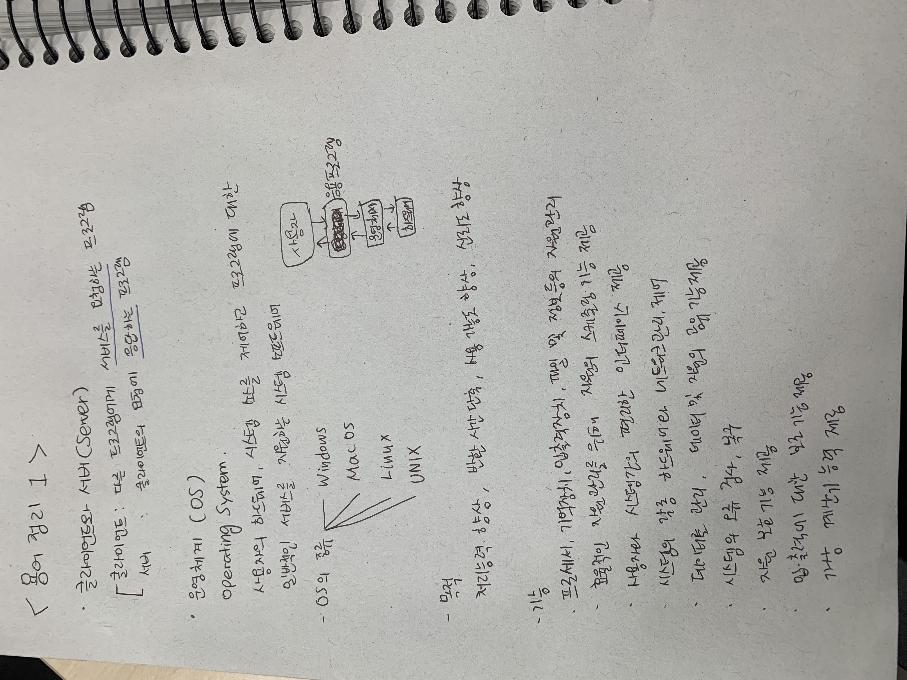 < 용어 정리 1 >
· 클라이언트와 서버(Server)
[ 클라이언트 : 다른 프로그램에게 서비스를 요청하는 프로그램
서버 : 클라이언트의 요청에 응답을 해주는 프로그램
· 운영체제 (OS)
Operating System.
사용자의 하드웨어, 시스템 리소스를 제어하고 프로그램에 대한
일반적 서비스를 지원하는 시스템 소프트웨어
- OS의 종류
Windows
Mac OS
Linux
UNIX
사용자
응용프로그램
운영체제
하드웨어
- 목적
처리능력 향상, 반환 시간 단축, 사용 가능도 향상, 신뢰도 향상
- 기능
프로세서, 기억장치, 입출력장치, 파일 및 정보 등의 자원관리
효율적인 자원관리를 위해 자원의 스케줄링 기능 제공
사용자와 시스템간의 편리한 인터페이스 제공
시스템의 각종 하드웨어와 네트워크 관리/제어
데이터 관리, 데이터 및 자원의 공유 기능 제공
시스템의 오류 검사, 복구
자원 보호 기능 제공
입·출력에 대한 보조 기능 제공
가상 계산기 능력 제공